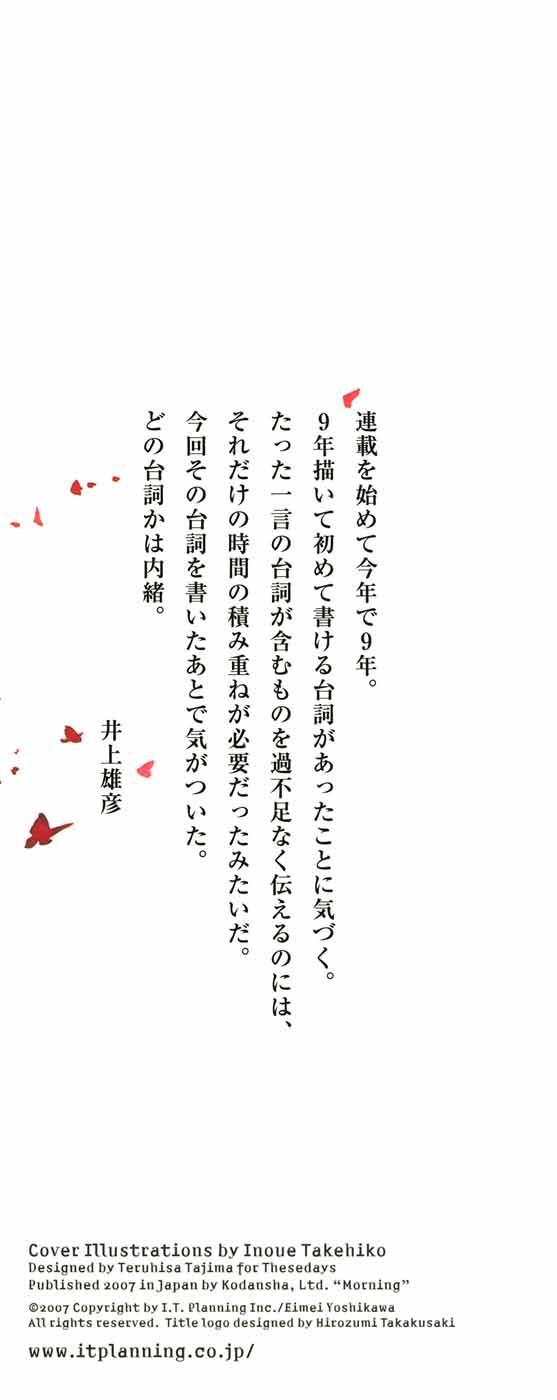 連載を始めて今年で9年。
9年描いて初めて書ける台詞があったことに気づく。
たった一言の台詞が含むものを過不足なく伝えるのには、
それだけの時間の積み重ねが必要だったみたいだ。
今回その台詞を書いたあとで気がついた。
どの台詞かは内緒。
井上雄彦
Cover Illustrations by Inoue Takehiko
Designed by Teruhisa Tajima for Thesedays
Published 2007 in Japan by Kodansha, Ltd. “Morning”
©2007 Copyright by I.T. Planning Inc./Eimei Yoshikawa
All rights reserved. Title logo designed by Hirozumi Takakusaki
www.itplanning.co.jp/